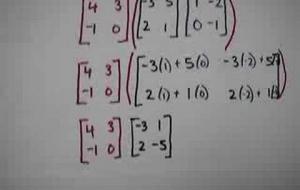 [4 3 -1 0] ([-3 5 2 1] [1 -2 0 -1])
[4 3 -1 0] ([-3(1) + 5(0) -3(-2) + 5 2(1) + 1(0) 2(-2) + 1(])
[4 3 -1 0] [-3 1 2 -5]